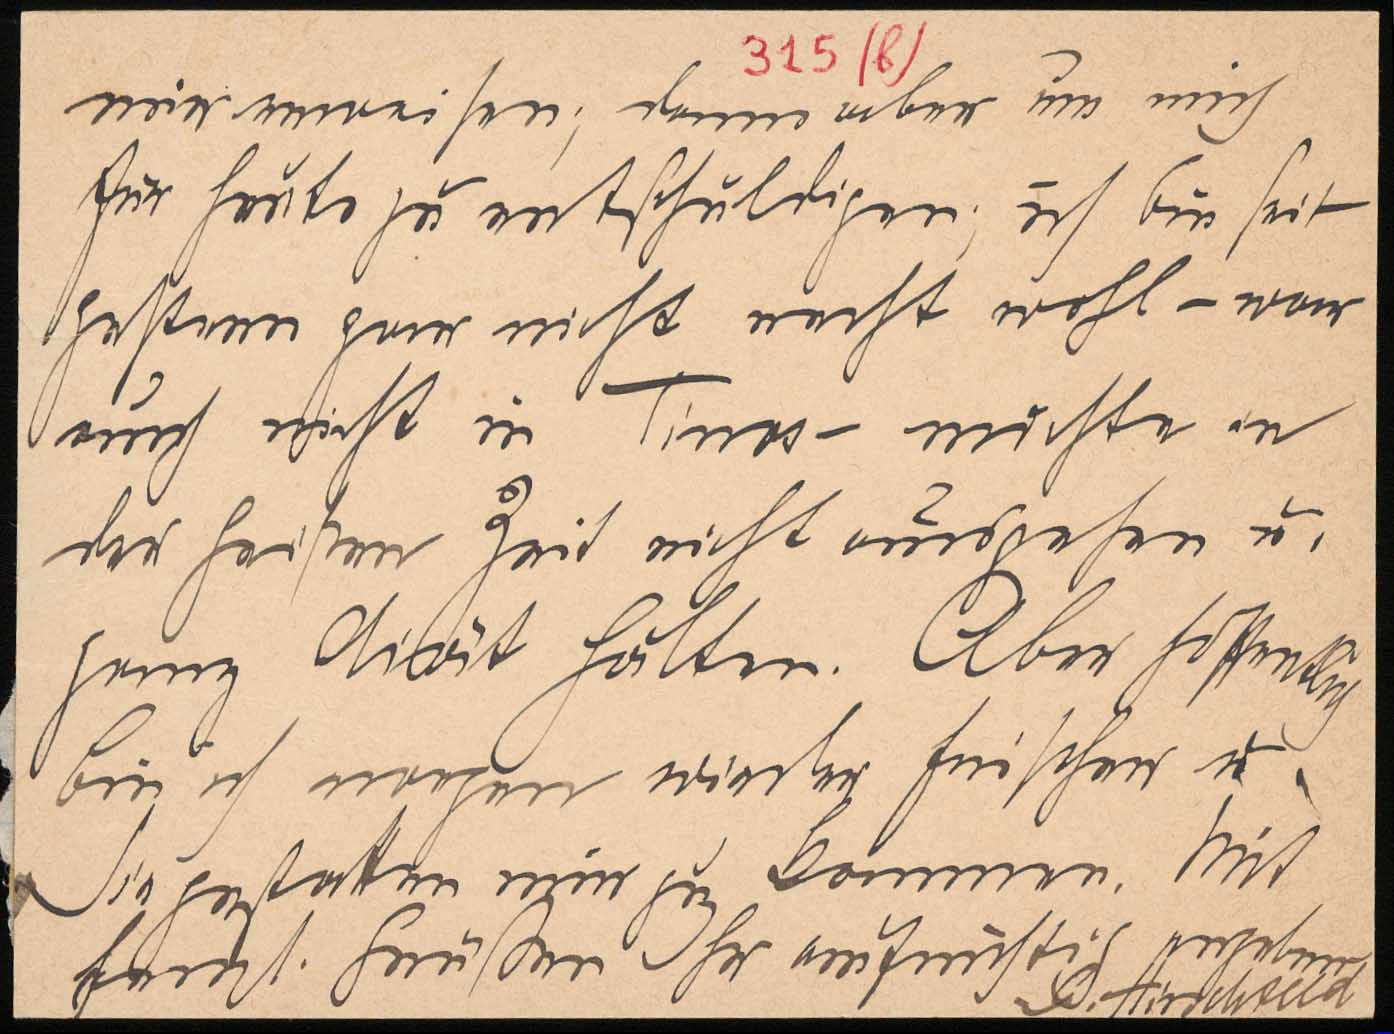 315 (b)
mir erweisen, dann aber um mich
für heute zu entschuldigen, ich bin seit
gestern gar nicht recht wohl – war
auch nicht in – möchte in
der heißen Zeit nicht ausgehen u.
ganz Diät halten. Aber hoffentlich
bin ich morgen wieder frischer u.
Sie gestatten mir zu kommen. Mit
herzl. Grüßen Ihr aufrichtig ergebener
O. Hirschfeld